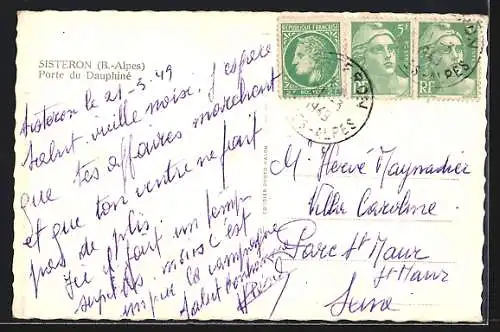 SISTERON (B.-Alpes)
Porte du Dauphiné
Sisteron le 21-3-49
Salut vieille noise. J'espère
que tes affaires marchent
et que ton ventre ne fait
pas de plis.
Ici il fait un temps
superbe, mais c'est
la campagne
Salut
POSTES
RÉPUBLIQUE FRANÇAISE
5F
RF
1949
SES-ALPES
M. Hervé Maynadier
Villa Caroline
Parc St Maur
St Maur
Seine